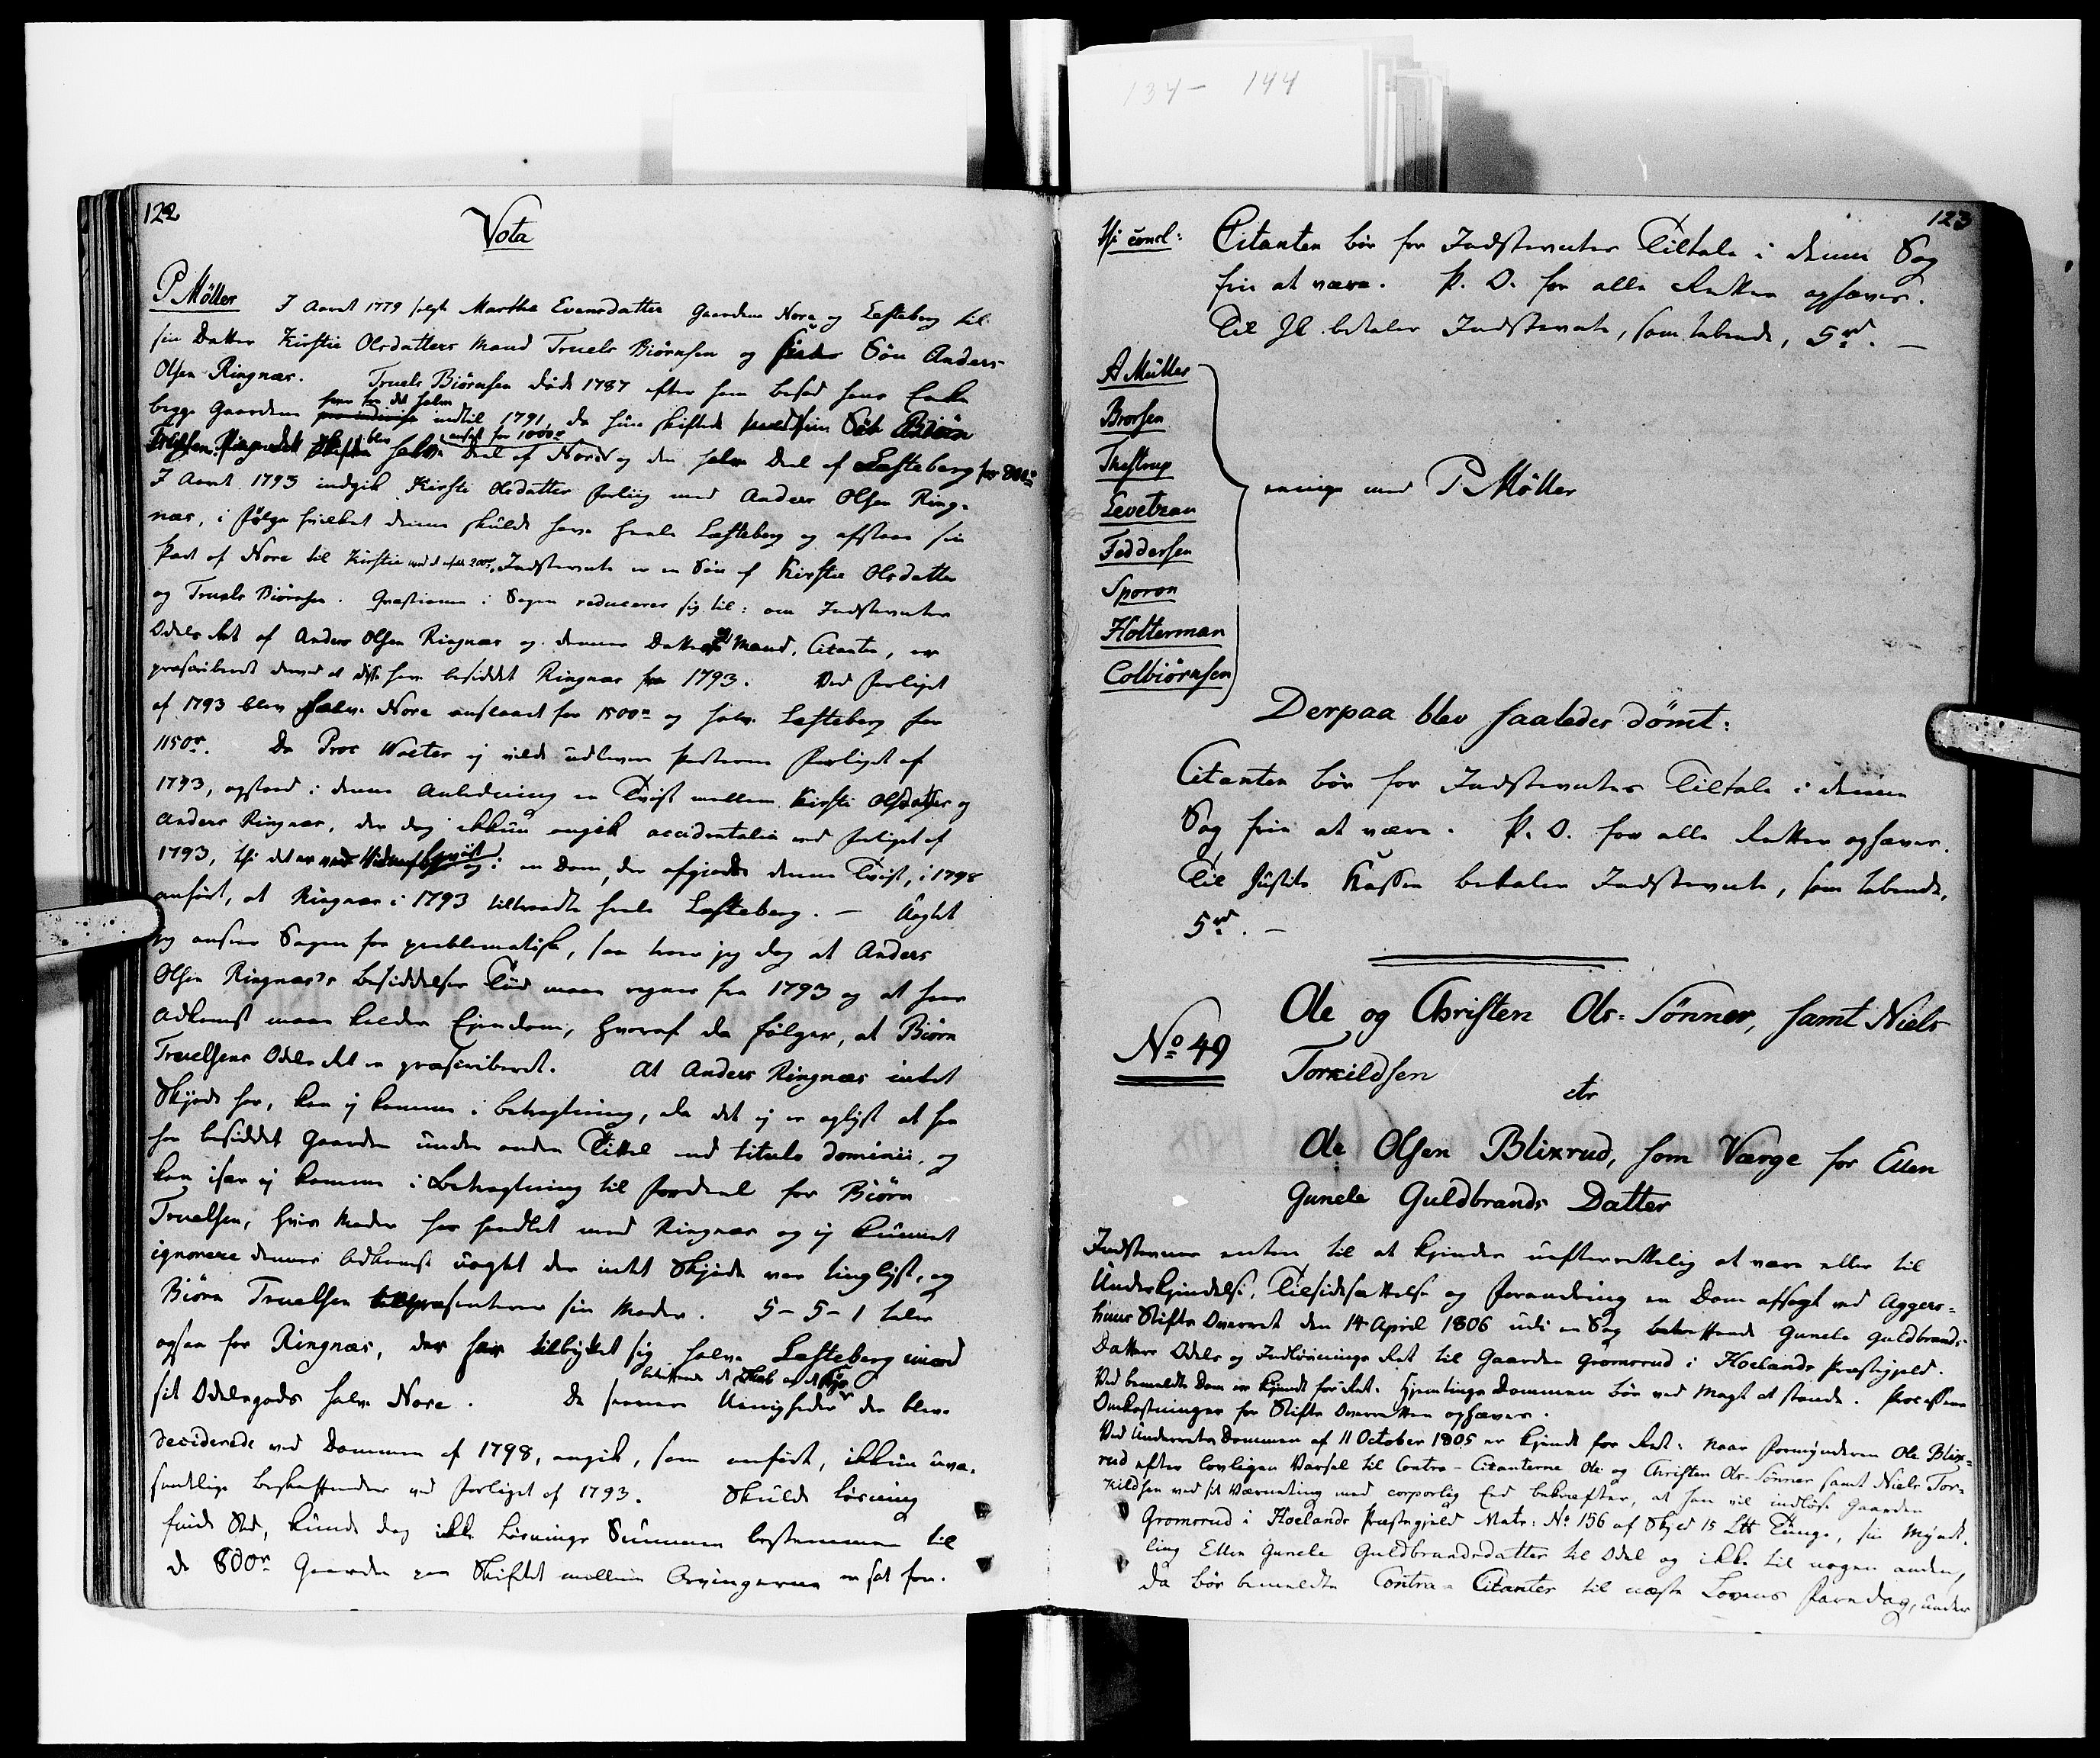 134- 144
122
Vota
P Möller
I Aaret 1779 solgte Marthe Evensdatter Gaardene Nore og Lefteberg til
sin Datter Kirstie Olsdatters Mand Truels Biørnsen og Søn Anders
Olsen Ringnæs. Truels Biørnsen døde 1787 efter ham besad hans Enke
begge Gaardene indtil 1791, da hun skiftede med sin Søn Biørn
halve Deel af Nore og den halve Deel af Lefteberg for 800r
I Aaret 1793 indgik Kirsti Olsdatter Forliig med Anders Olsen Ring-
næs, i følge hvilket denne skulde have heele Lefteberg og afstaae sin
Part af Nore til Kirstie Indstevnte er en Søn af Kirstie Olsdatter
og Truels Biørnsen. Qvæstionen i Sagen reducerer sig til: om Indstevntes
Odels Ret af Anders Olsen Ringnæs og dennes Datters Mand, Citanten, er
præscriberet derved at disse have besiddet Ringnæs fra 1793. Ved Forliget
af 1793 blev halve Nore anslaaet for 1500r og halve Lefteberg for
1150r. Da Proc Wolter ej vilde udlevere Parterne Forliget af
1793, opstod i denne Anledning en Tvist mellem Kirsti Olsdatter og
Anders Ringnæs, der dog ikkun angik accidentalia ved Forliget af
1793, thi det er i en Dom, der afgjorde denne Tvist, i 1798
anført, at Ringnæs i 1793 tiltraadte heele Lefteberg. — Uagtet
jeg anseer Sagen for problematisk, saa troer jeg dog at Anders
Olsen Ringnæs's Besiddelses Tiid maae regnes fra 1793 og at hans
Adkomst maae kaldes Eiendom, hvoraf da følger, at Biørn
Truelsens Odels Ret er præscriberet. At Anders Ringnæs intet
Skjøde har, kan ej komme i Betragtning, da det ej er oplyst at han
har besiddet Gaarden under anden Tittel end titulo dominii, og
kan især ej komme i Betragtning til Fordeel for Biørn
Truelsen, hvis Moder har handlet med Ringnæs og ej kunnet
ignorere dennes Adkomst uagtet der intet Skjøde var tinglyst, og
Biørn Truelsen repræsenterer sin Moder. 5-5-1 taler
ogsaa for Ringnæs, der har tilbyttet sig halve Lefteberg imod
sit Odelsgods halve Nore. De senere Uenigheder der bleve
deciderede ved Dommen af 1798, angik, som anført, ikkun uvæ-
sentlige Beskaffenheder ved Forliget af 1793. Skulde Løsning
finde Sted, kunde dog ikke Løsnings Summen bestemmes til
de 800r Gaarden paa Skiftet mellem Arvingerne er sat for.
123
Thi concl: Citanten bør for Indstevntes Tiltale i denne Sag
frie at være. P. O. for alle Retter ophæves.
Til JC betaler Indstevnte, som tabende, 5rd. —
A Müller
Brorsen
Thestrup
Levetzau
Feddersen
Sporon
Holterman
Colbiørnsen
enige med P. Möller
Derpaa blev saaledes dømt:
Citanten bør for Indstevntes Tiltale i denne
Sag frie at være. P. O. for alle Retter ophæves.
Til Justits Kassen betaler Indstevnte, som tabende,
5rd. —
No 49
Ole og Christen Ols-Sønner, samt Niels
Torkildsen
ctr
Ole Olsen Blixrud, som Værge for Ellen
Gunele Guldbrands Datter
Indstevner enten til at kjendes uefterrettelig at være eller til
Underkjendelse, Tilsidesættelse og Forandring en Dom afsagt ved Aggers-
huus Stifts Overret den 14 April 1806 udi en Sag betreffende Gunele Guldbrands
Datters Odels og Indløsnings Ret til Gaarden Gromsrud i Hoelands Præstegjeld.
Ved bemeldte Dom er kjendt for Ret: Hjemtings Dommen bør ved Magt at stande. Processens
Omkostninger for Stifts Overretten ophæves.
Ved Underrets Dommen af 11 October 1805 er kjendt for Ret: Naar Formynderen Ole Blix-
rud efter lovligen Varsel til Contra-Citanterne Ole og Christen Ols-Sønner samt Niels Tor-
kildsen ved sit Værneting med corporlig Eed bekræfter, at han vil indløse Gaarden
Gromsrud i Hoelands Præstegjeld Matr: No 156 af Skyld 15 Ltt Tunge, sin Mynd-
ling Ellen Gunele Guldbrandsdatter til Odel og ikke til nogen anden,
da bør bemeldte Contra-Citanter til næste Lovens Faredag, under